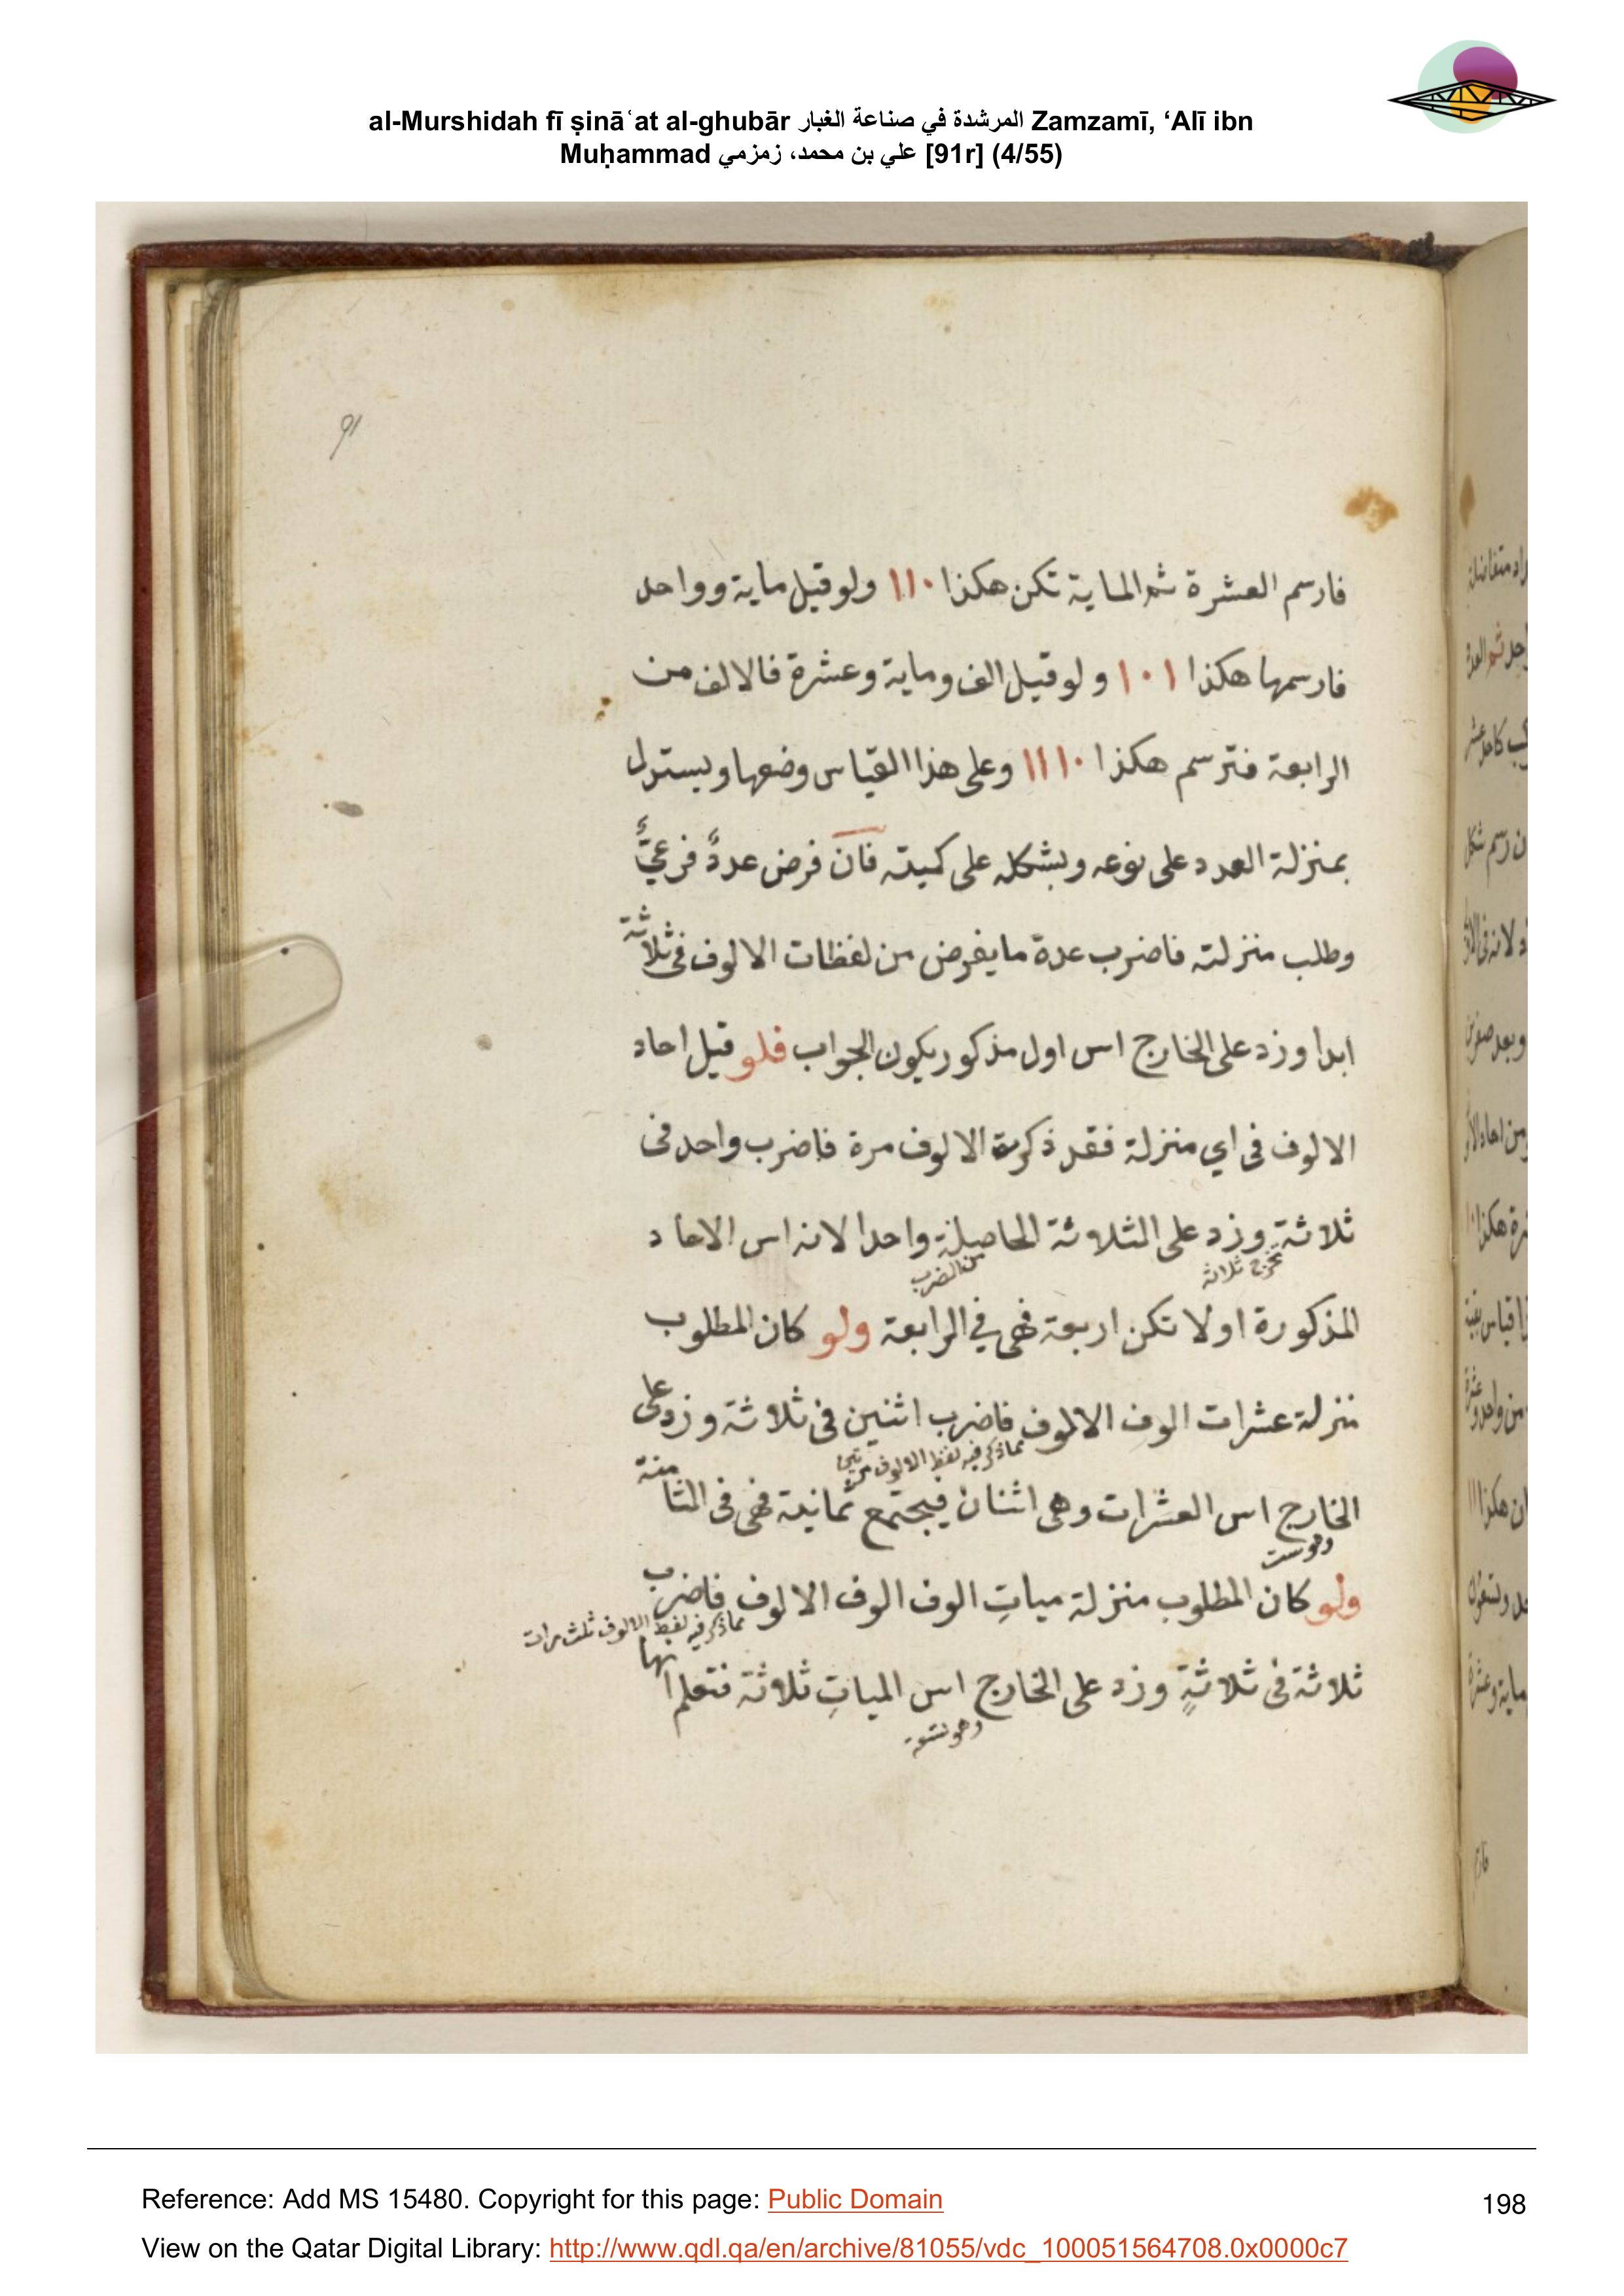 al-Murshidah fī ṣināʿat al-ghubār المرشدة في صناعة الغبار Zamzamī, ‘Alī ibn
Muḥammad علي بن محمد، زمزمي [91r] (4/55)
91
فارسم العشرة ثم الماية تكن هكذا ١١٠ ولو قيل ماية وواحد
فارسمها هكذا ١٠١ ولو قيل الف وماية وعشرة فالالف من
الرابعة فترسم هكذا ١١١٠ وعلى هذا القياس وضعها ويستدل
بمنزلة العدد على نوعه وبشكله على كميته فان فرض عددٌ فرعيٌّ
وطلب منزلته فاضرب عدة ما يفرض من لفظات الالوف فى ثلاثة
ابدا وزد على الخارج اس اول مذكور يكون الجواب فلو قيل احاد
الالوف فى اي منزلة فقد ذكرت الالوف مرة فاضرب واحد فى
ثلاثة وزد على الثلاثة الحاصلة واحدا لانه اس الاحاد
تخرج ثلاثة من الضرب
المذكورة اولا تكن اربعة فهى في الرابعة ولو كان المطلوب
منزلة عشرات الوف الالوف فاضرب اثنين فى ثلاثة وزد على
مما ذكر فيه لفظ الالوف مرتين
الخارج اس العشرات وهى اثنان فيجتمع ثمانية فهى فى الثامنة
وهو ست
ولو كان المطلوب منزلة مياتِ الوف الوف الالوف فاضرب
مما ذكر فيه لفظ الالوف ثلث مرات
ثلاثة فى ثلاثةٍ وزد على الخارج اس المياتِ ثلاثة فتعلم انها
وهو تسعة
Reference: Add MS 15480. Copyright for this page: Public Domain
198
View on the Qatar Digital Library: http://www.qdl.qa/en/archive/81055/vdc_100051564708.0x0000c7